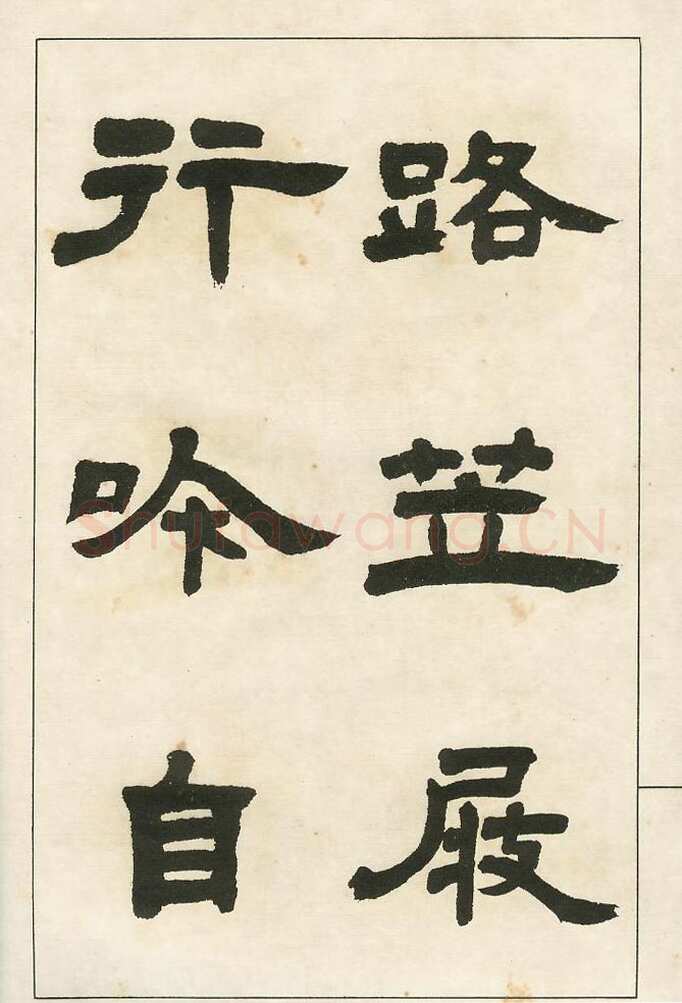 路笠屐
行吟自
Shufawang.CN